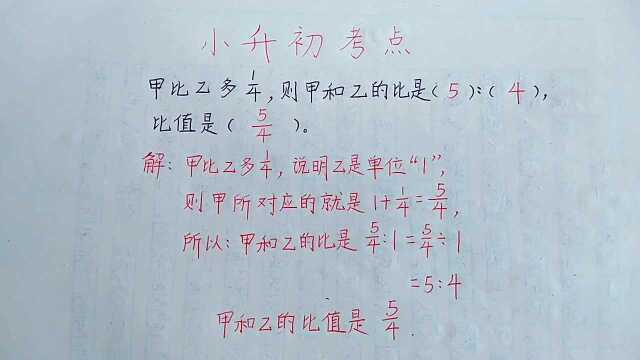 小升初考点
甲比乙多1/4,则甲和乙的比是(5):(4),
比值是(5/4)。
解:甲比乙多1/4,说明乙是单位“1”,
则甲所对应的就是1+1/4=5/4,
所以:甲和乙的比是5/4:1=5/4÷1
=5:4
甲和乙的比值是5/4.